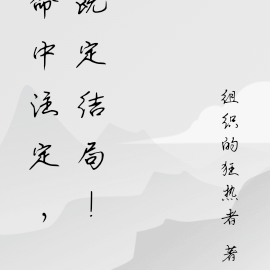 命中注定，
既定结局！
组织的狂热者 著